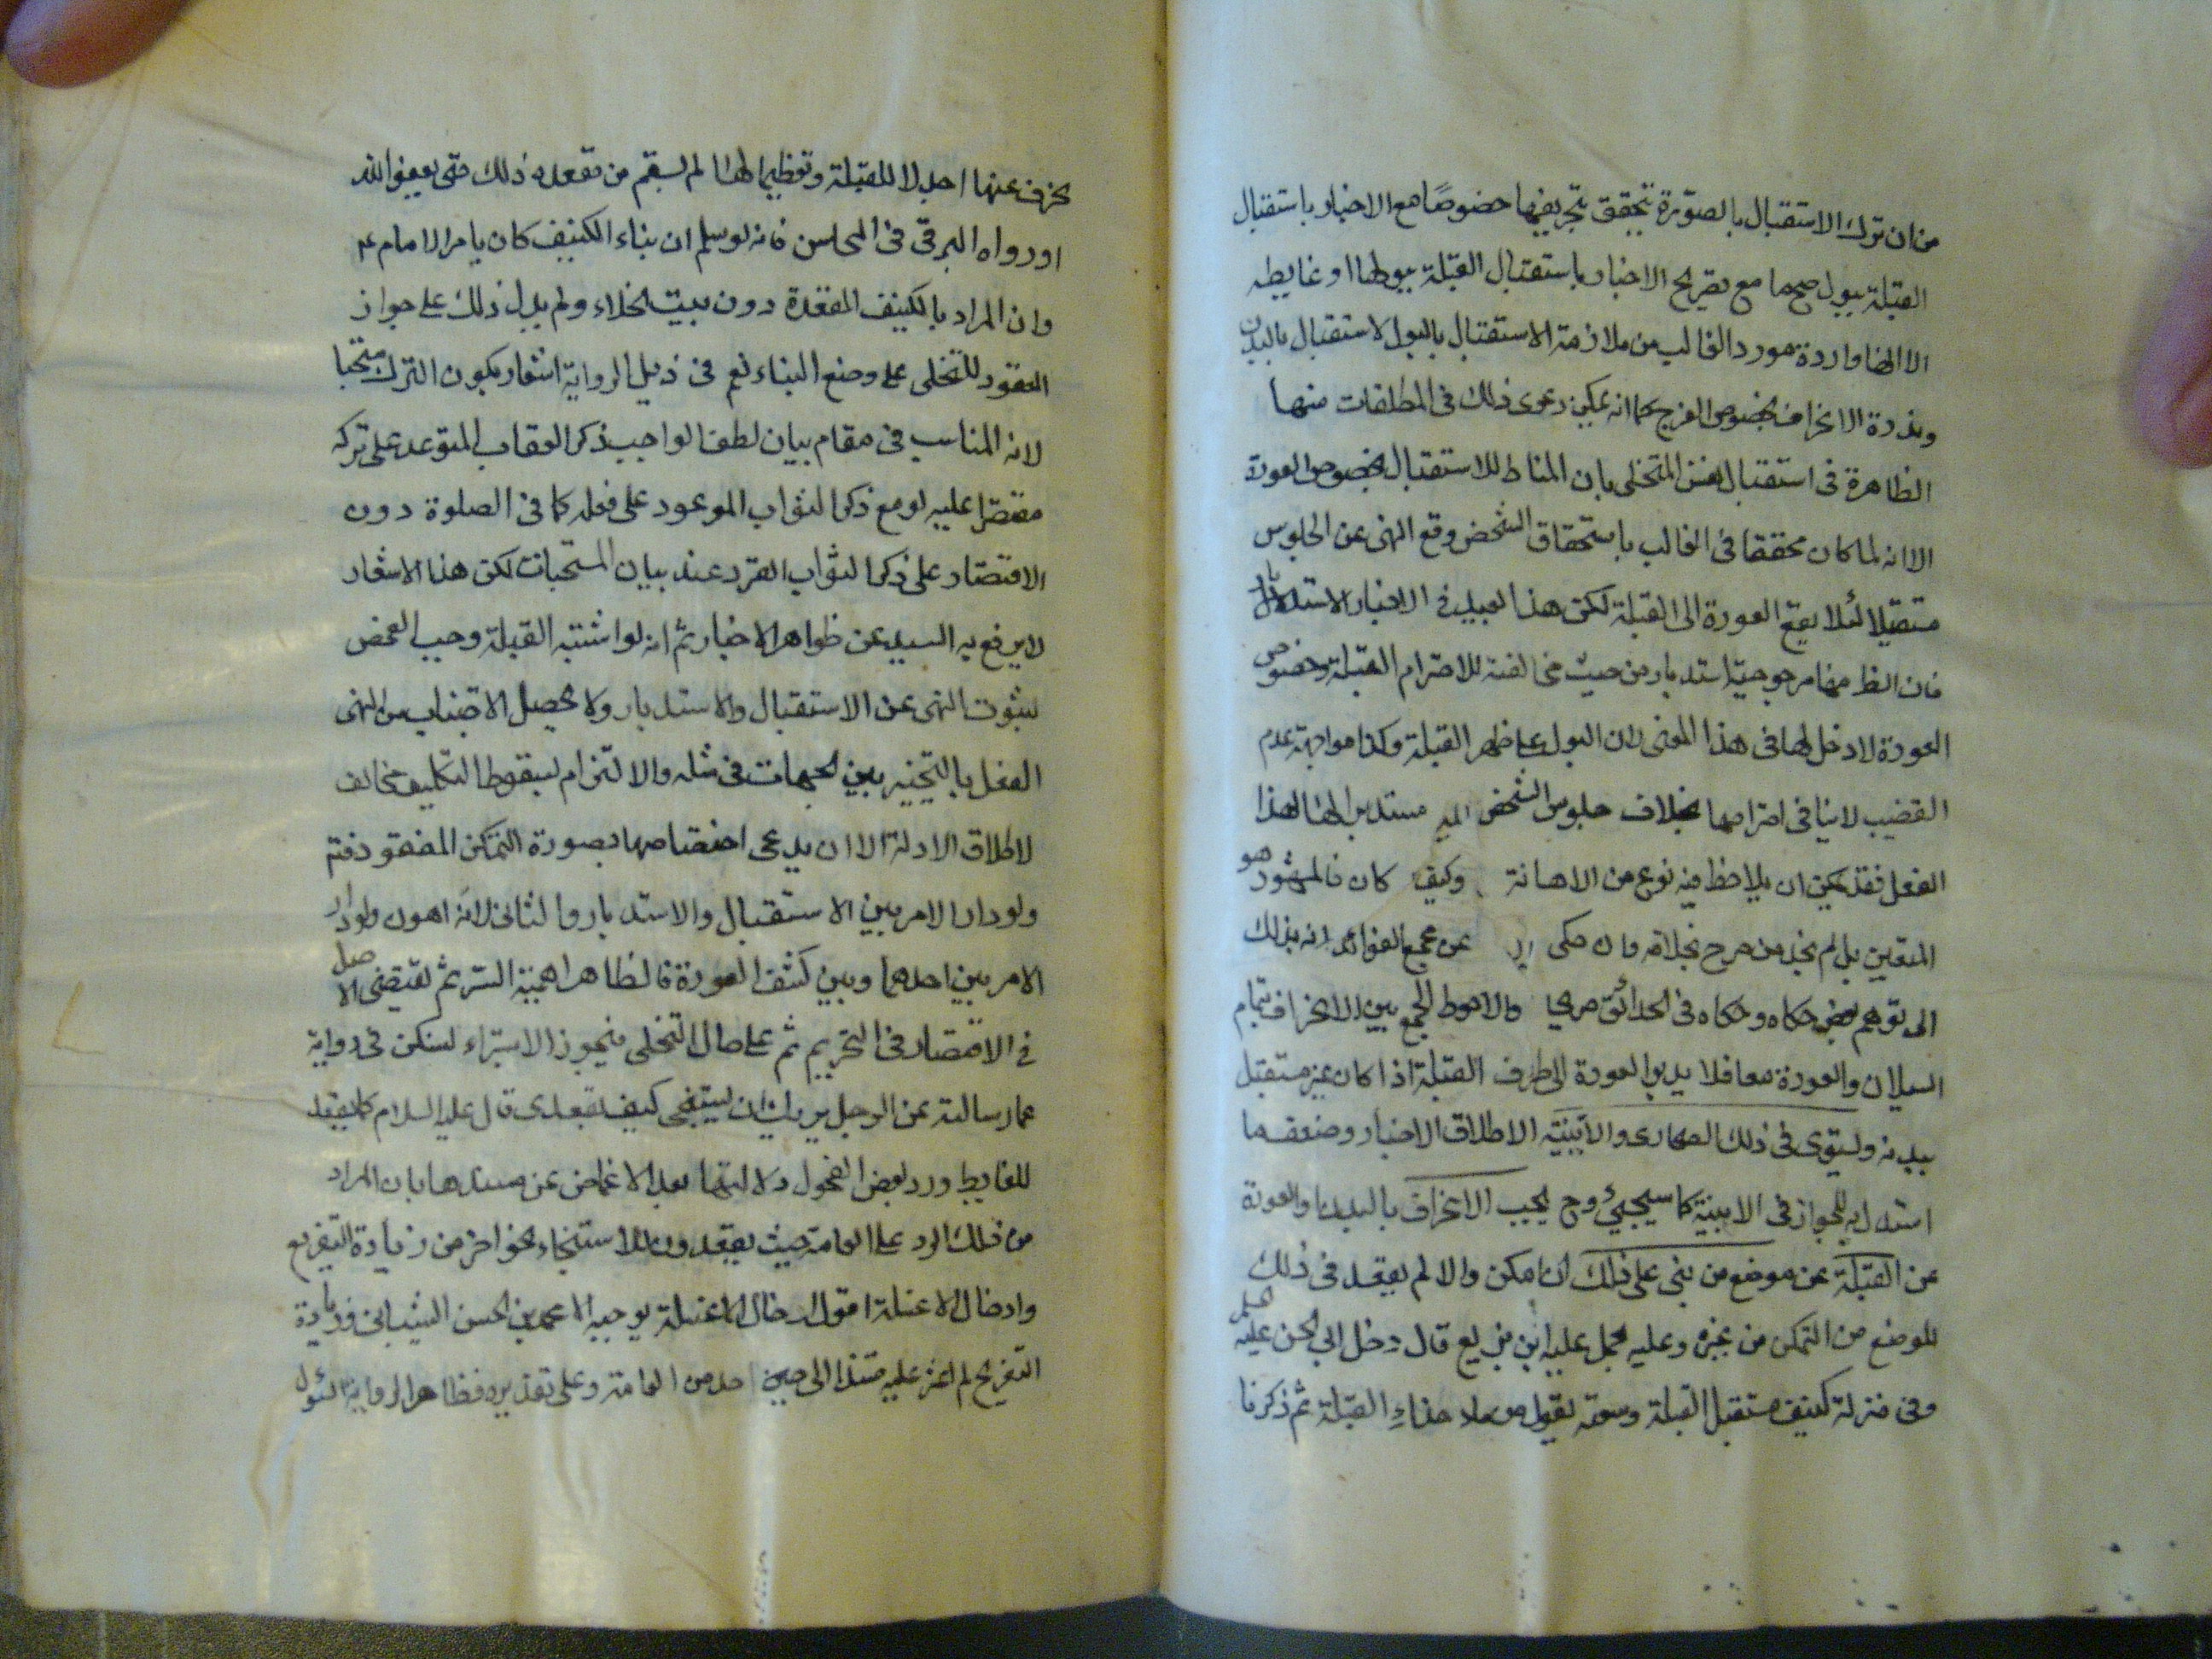 من ان ترك الاستقبال بالصورة يتحقق بتحريفها خصوصًا مع الاخبار باستقبال
القبلة ببول صحها مع تصريح الاخبار باستقبال القبلة ببولها او غايطه
الا انها واردة مورد الغالب من ملازمة الاستقبال بالبول لاستقبال بالبدن
وندرة الانحراف بخصوص الفرج كما انه يمكن دعوى ذلك فى المطلقات منها
الظاهرة فى استقبال نفس المتخلى بان المناط للاستقبال بخصوص العورة
الا انه لما كان محققا فى الغالب باستحقاق الشخص وقع النهى عن الجلوس
مستقبلا لئلا يقع العورة الى القبلة لكن هذا بعيد فى الاخبار الاستدبار
فان الظ منها مرجوحية استدبار من حيث مخالفته للاحترام القبلة وخصوص
العورة لا دخل لها فى هذا المعنى لان البول على ظهر القبلة وكذا مواجهة عدم
القضيب لا ينافى احترامها بخلاف جلوس الشخص مستدبرا لها لهذا
الفعل فقد يمكن ان يلاحظ فيه نوع من الاهانة وكيف كان فالمشهور هو
المتعين بل لم نجد من صرح بخلافه وان حكى عن مجمع الفوائد انه بذلك
الى توهم بعض حكاه وحكاه فى الحدائق صريحا والاحوط الجمع بين الانحراف بتمام
السيلان والعورة معا فلا يدير العورة الى طرف القبلة اذا كان غير مستقبل
ببدنه وليتوى فى ذلك الصحارى والابنية الاطلاق الاخبار وضعف ما
استدل به للجواز فى الابنية كما سيجيئ وح يجب الانحراف بالبدن والعورة
عن القبلة عن موضع من بنى على ذلك ان امكن والا لم يقعد فى ذلك
الموضع من التمكن من غيره وعليه يحمل عليه ابن بزيع قال دخل ابى الحسن عليه السلم
وفى منزلة كنيف مستقبل القبلة وسمعته يقول من بال حذاء القبلة ثم ذكر فا
نحرف عنها اجلالا للقبلة وتعظيما لها لم يقم من مقعده ذلك حتى يغفر الله
او رواه البرقى فى المحاسن فانه لو سلم ان بناء الكنيف كان بامر الامام ع
وان المراد بالكنيف المقعدة دون بيت الخلاء ولم يدل ذلك على جواز
القعود للتخلى على وضع البناء نعم فى ذيل الرواية اشعار بكون الترك مستحبا
لانه المناسب فى مقام بيان لطف الواجب ذكر العقاب المتوعد على تركه
مقتصرا عليه او مع ذكر الثواب الموعود على فعله كما فى الصلوة دون
الاقتصار على ذكر الثواب المفرد عند بيان المستحبات لكن هذا الاشعار
لا يرفع به اليد عن ظواهر الاخبار ثم انه لو اشتبه القبلة وجب الفحص
لثبوت النهى عن الاستقبال والاستدبار ولا يحصل الاجتناب من النهى
الفعل بالتخيير بين الجهات فى مثله والالتزام بسقوط التكليف مخالف
لاطلاق الادلة الا ان يدعى اختصاصها بصورة التمكن المفقود فتم
ولو دار الامر بين الاستقبال والاستدبار والثانى لانه اهون ولو دار
الامر بين احدهما وبين كشف العورة فالظاهر اهمية الستر ثم مقتضى الاصل
فى الاقتصار فى التحريم ثم على حال التخلى فيجوز الاستبراء لسكن فى رواية
عمار سالته عن الرجل يريد ان يستنجى كيف يقعد ى قال عليه السلام كما يقعد
للغايط ورد بعض الفحول دلالتها بعد الاغماض عن سندها بان المراد
من ذلك الرد على العامة حيث يقعدون للاستنجاء نحو اخر من زيادة التفريع
وادخال الانملة اقول ادخال الانملة يوجبه الا محمد بن الحسن الشيبانى وزيادة
التفريج لم اعثر عليه متنا الى حين احد من العامة وعلى تقديره فظاهر الرواية السؤل